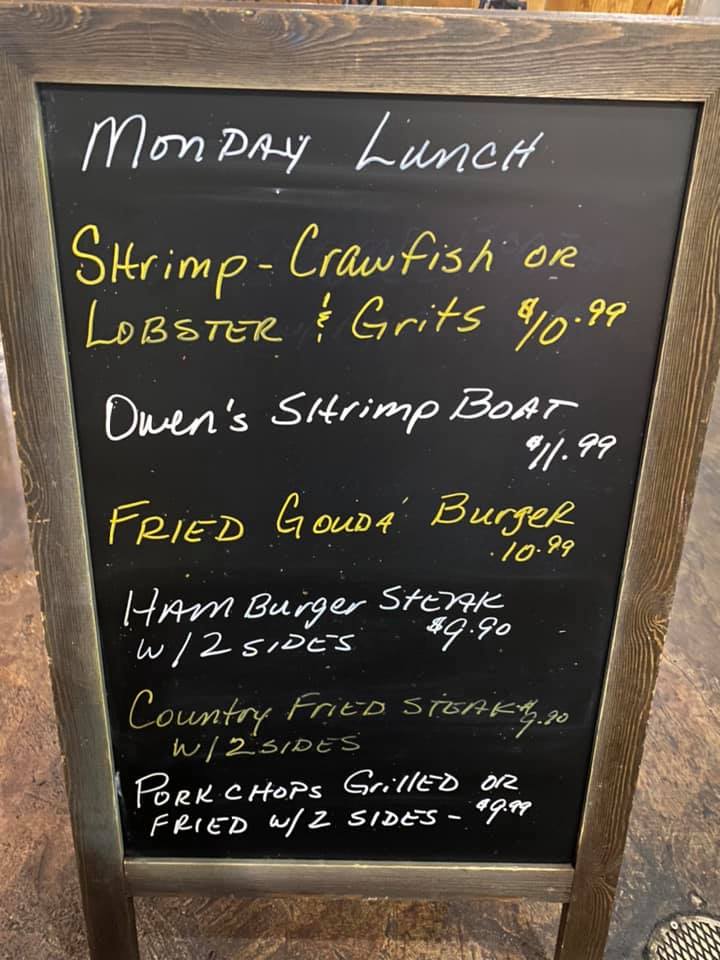 Monday Lunch
Shrimp - Crawfish or
Lobster & Grits $10.99
Owen's Shrimp Boat
$11.99
Fried Gouda Burger
.10.99
Hamburger Steak
w/2 sides $9.90
Country Fried Steak $9.90
w/2 sides
Pork Chops Grilled or
Fried w/2 sides - $9.99